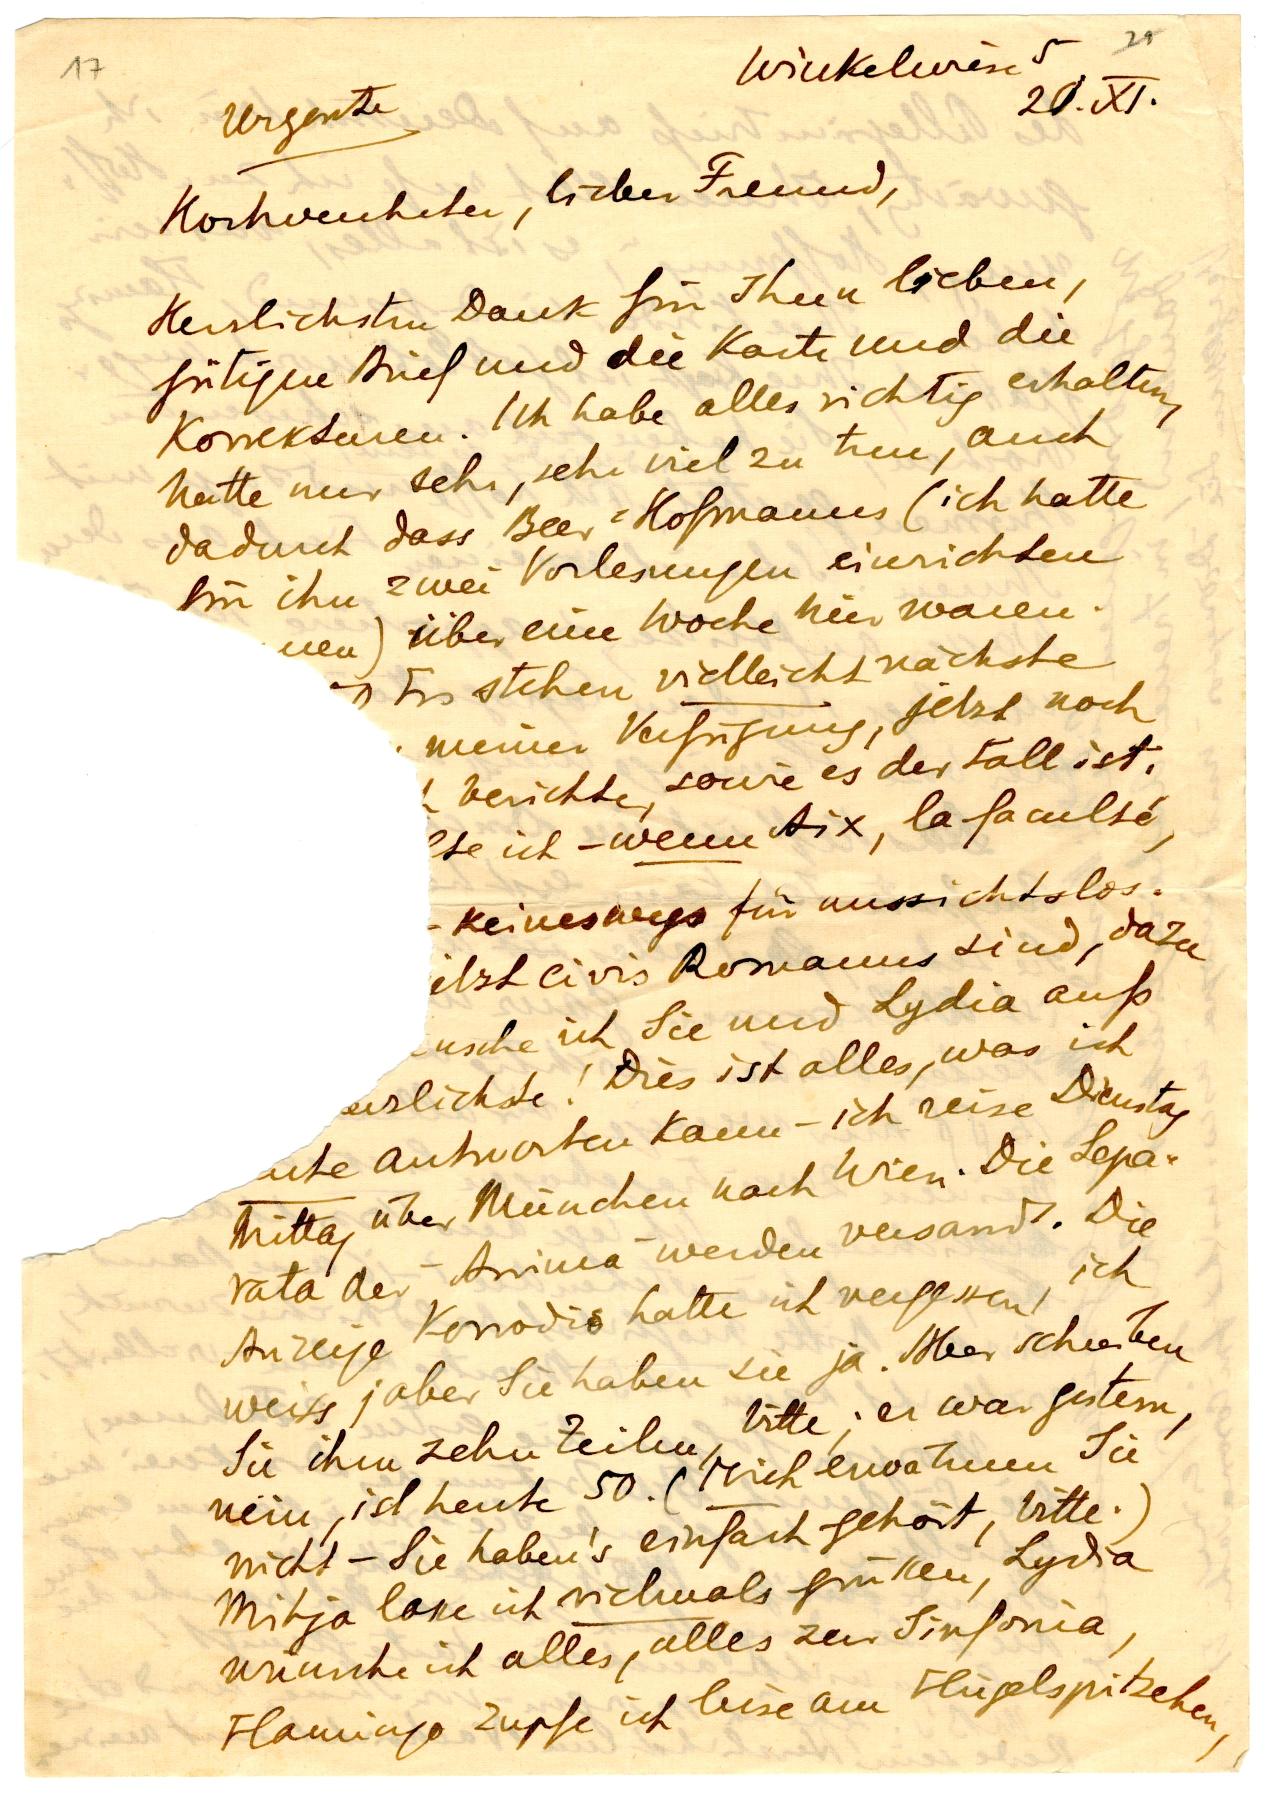 17
21
Winkelwiese 5
20. XI.
Urgente
Hochverehrter, lieber Freund,
Herzlichsten Dank für Ihren lieben,
gütigen Brief und die Karte und die
Korrekturen. Ich habe alles richtig erhalten,
hatte nur sehr, sehr viel zu tun, auch
dadurch dass Beer-Hofmanns (ich hatte
für ihn zwei Vorlesungen einrichten
nen) über eine Woche hier waren.
Frs stehen vielleicht nächste
meiner Verfügung, jetzt noch
h berichte, sowie es der Fall ist.
lte ich – wenn Aix, la faculté,
– keineswegs für aussichtslos.
jetzt civis Romanus sind, dazu
nsche ich Sie und Lydia aufs
erzlichste! Dies ist alles, was ich
ute antworten kann – ich reise Dienstag
Mittag über München nach Wien. Die Sepa-
rata der "Anima" werden versandt. Die
Anzeige Korrodis hatte ich vergessen, ich
weiss, aber Sie haben sie ja. Aber schreiben
Sie ihm zehn Zeilen, bitte; er war gestern,
nein, ist heute 50. (Mich erwähnen Sie
nicht – Sie haben's einfach gehört, bitte.)
Mitja lasse ich vielmals grüßen, Lydia
wünsche ich alles, alles zur Sinfonia,
Flamingo zupfe ich leise am Flügelspitzchen,